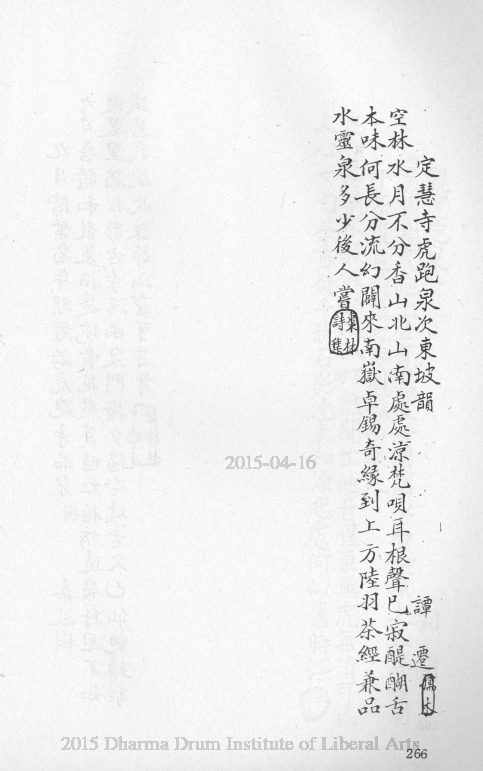 定慧寺虎跑泉次東坡韻 譚遷
空林水月不分香山北山南處處涼梵唄耳根聲已寂醍醐舌
本味何長分流幻闢來南嶽卓錫奇緣到上方陸羽茶經兼品
水靈泉多少後人嘗 棗林詩集
2015-04-16
2015 Dharma Drum Institute of Liberal Arts
266